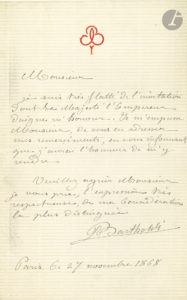 Monsieur
je suis très flatté de l'invitation
dont Sa Majesté l'Empereur
daigne m'honorer. Je m'empresse
Monsieur, de vous en adresser
mes remerciements, en vous informant
que j'aurai l'honneur de m'y
rendre.
Veuillez agréer Monsieur
je vous prie, l'expression très
respectueuse, de ma considération
la plus distinguée
Bartholdi
Paris le 27 novembre 1868